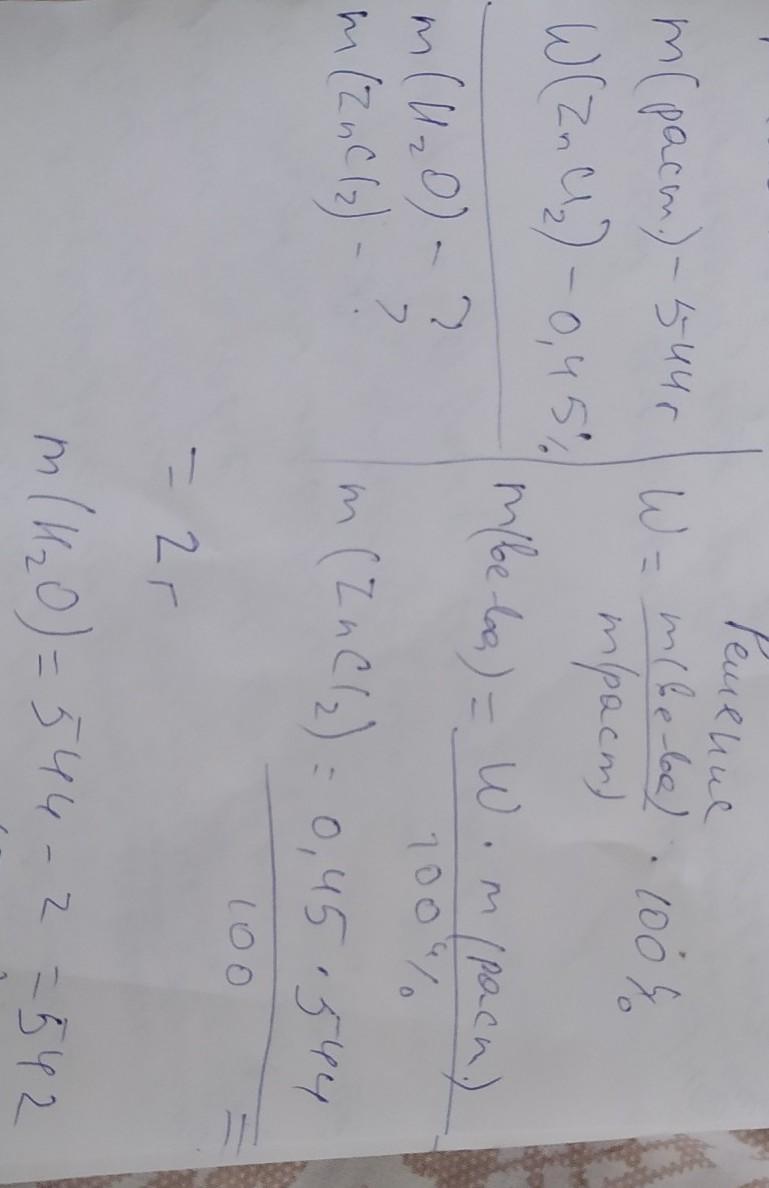 m(раст.) - 544г
W(ZnCl₂) - 0,45%
m(H₂O) - ?
m(ZnCl₂) - ?
Решение
W = m(ве-ва) / m(раст) · 100%
m(ве-ва) = W · m(раст.) / 100%
m(ZnCl₂) = 0,45 · 544 / 100 =
= 2г
m(H₂O) = 544 - 2 = 542